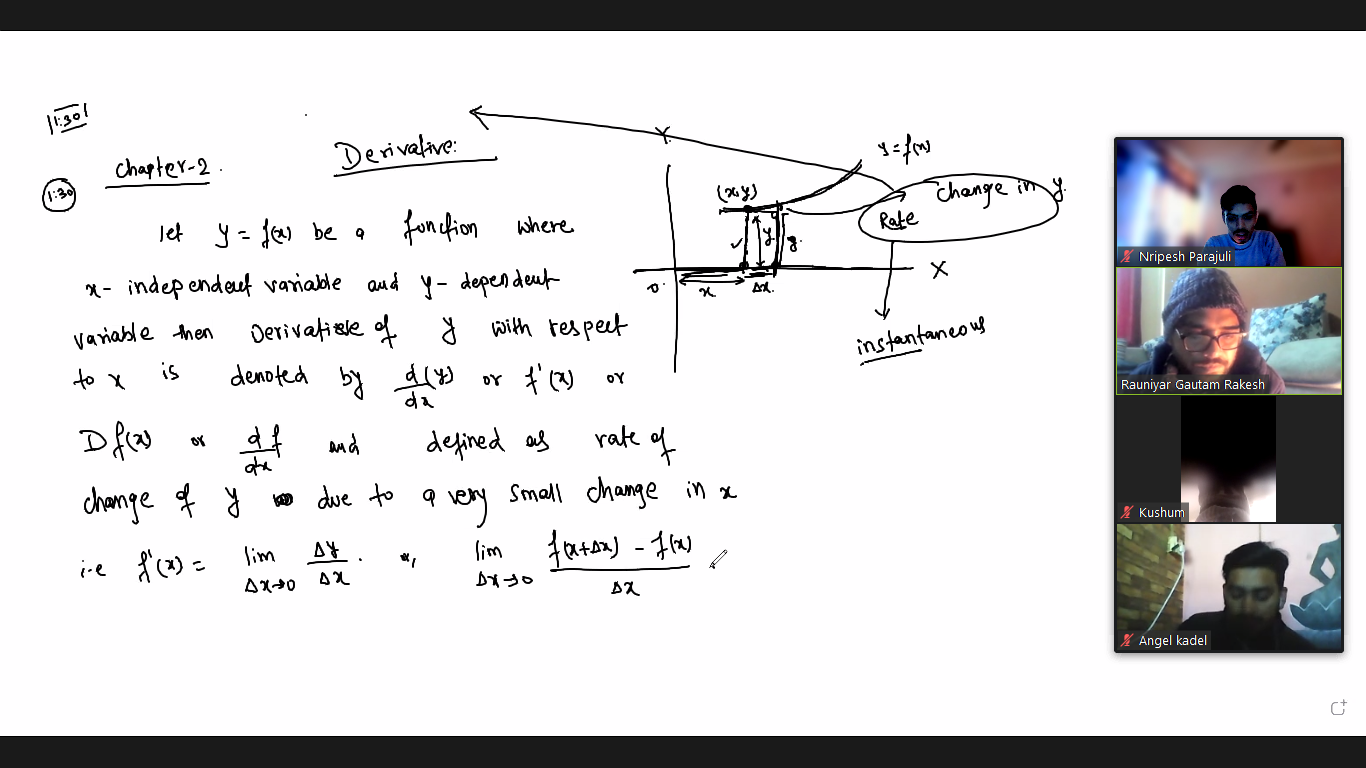 11:30
Chapter-2
Derivative:
1:30
let y = f(x) be a function where
x- independent variable and y- dependent
variable then Derivative of y with respect
to x is denoted by d/dx (y) or f'(x) or
Df(x) or df/dx and defined as rate of
change of y due to a very small change in x
i.e f'(x) = lim Δx→0 Δy/Δx . or, lim Δx→0 f(x+Δx) - f(x)/Δx
Y
y = f(x)
(x,y)
y
y
x
Δx
0
X
Rate change in y.
instantaneous
Nripesh Parajuli
Rauniyar Gautam Rakesh
Kushum
Angel kadel